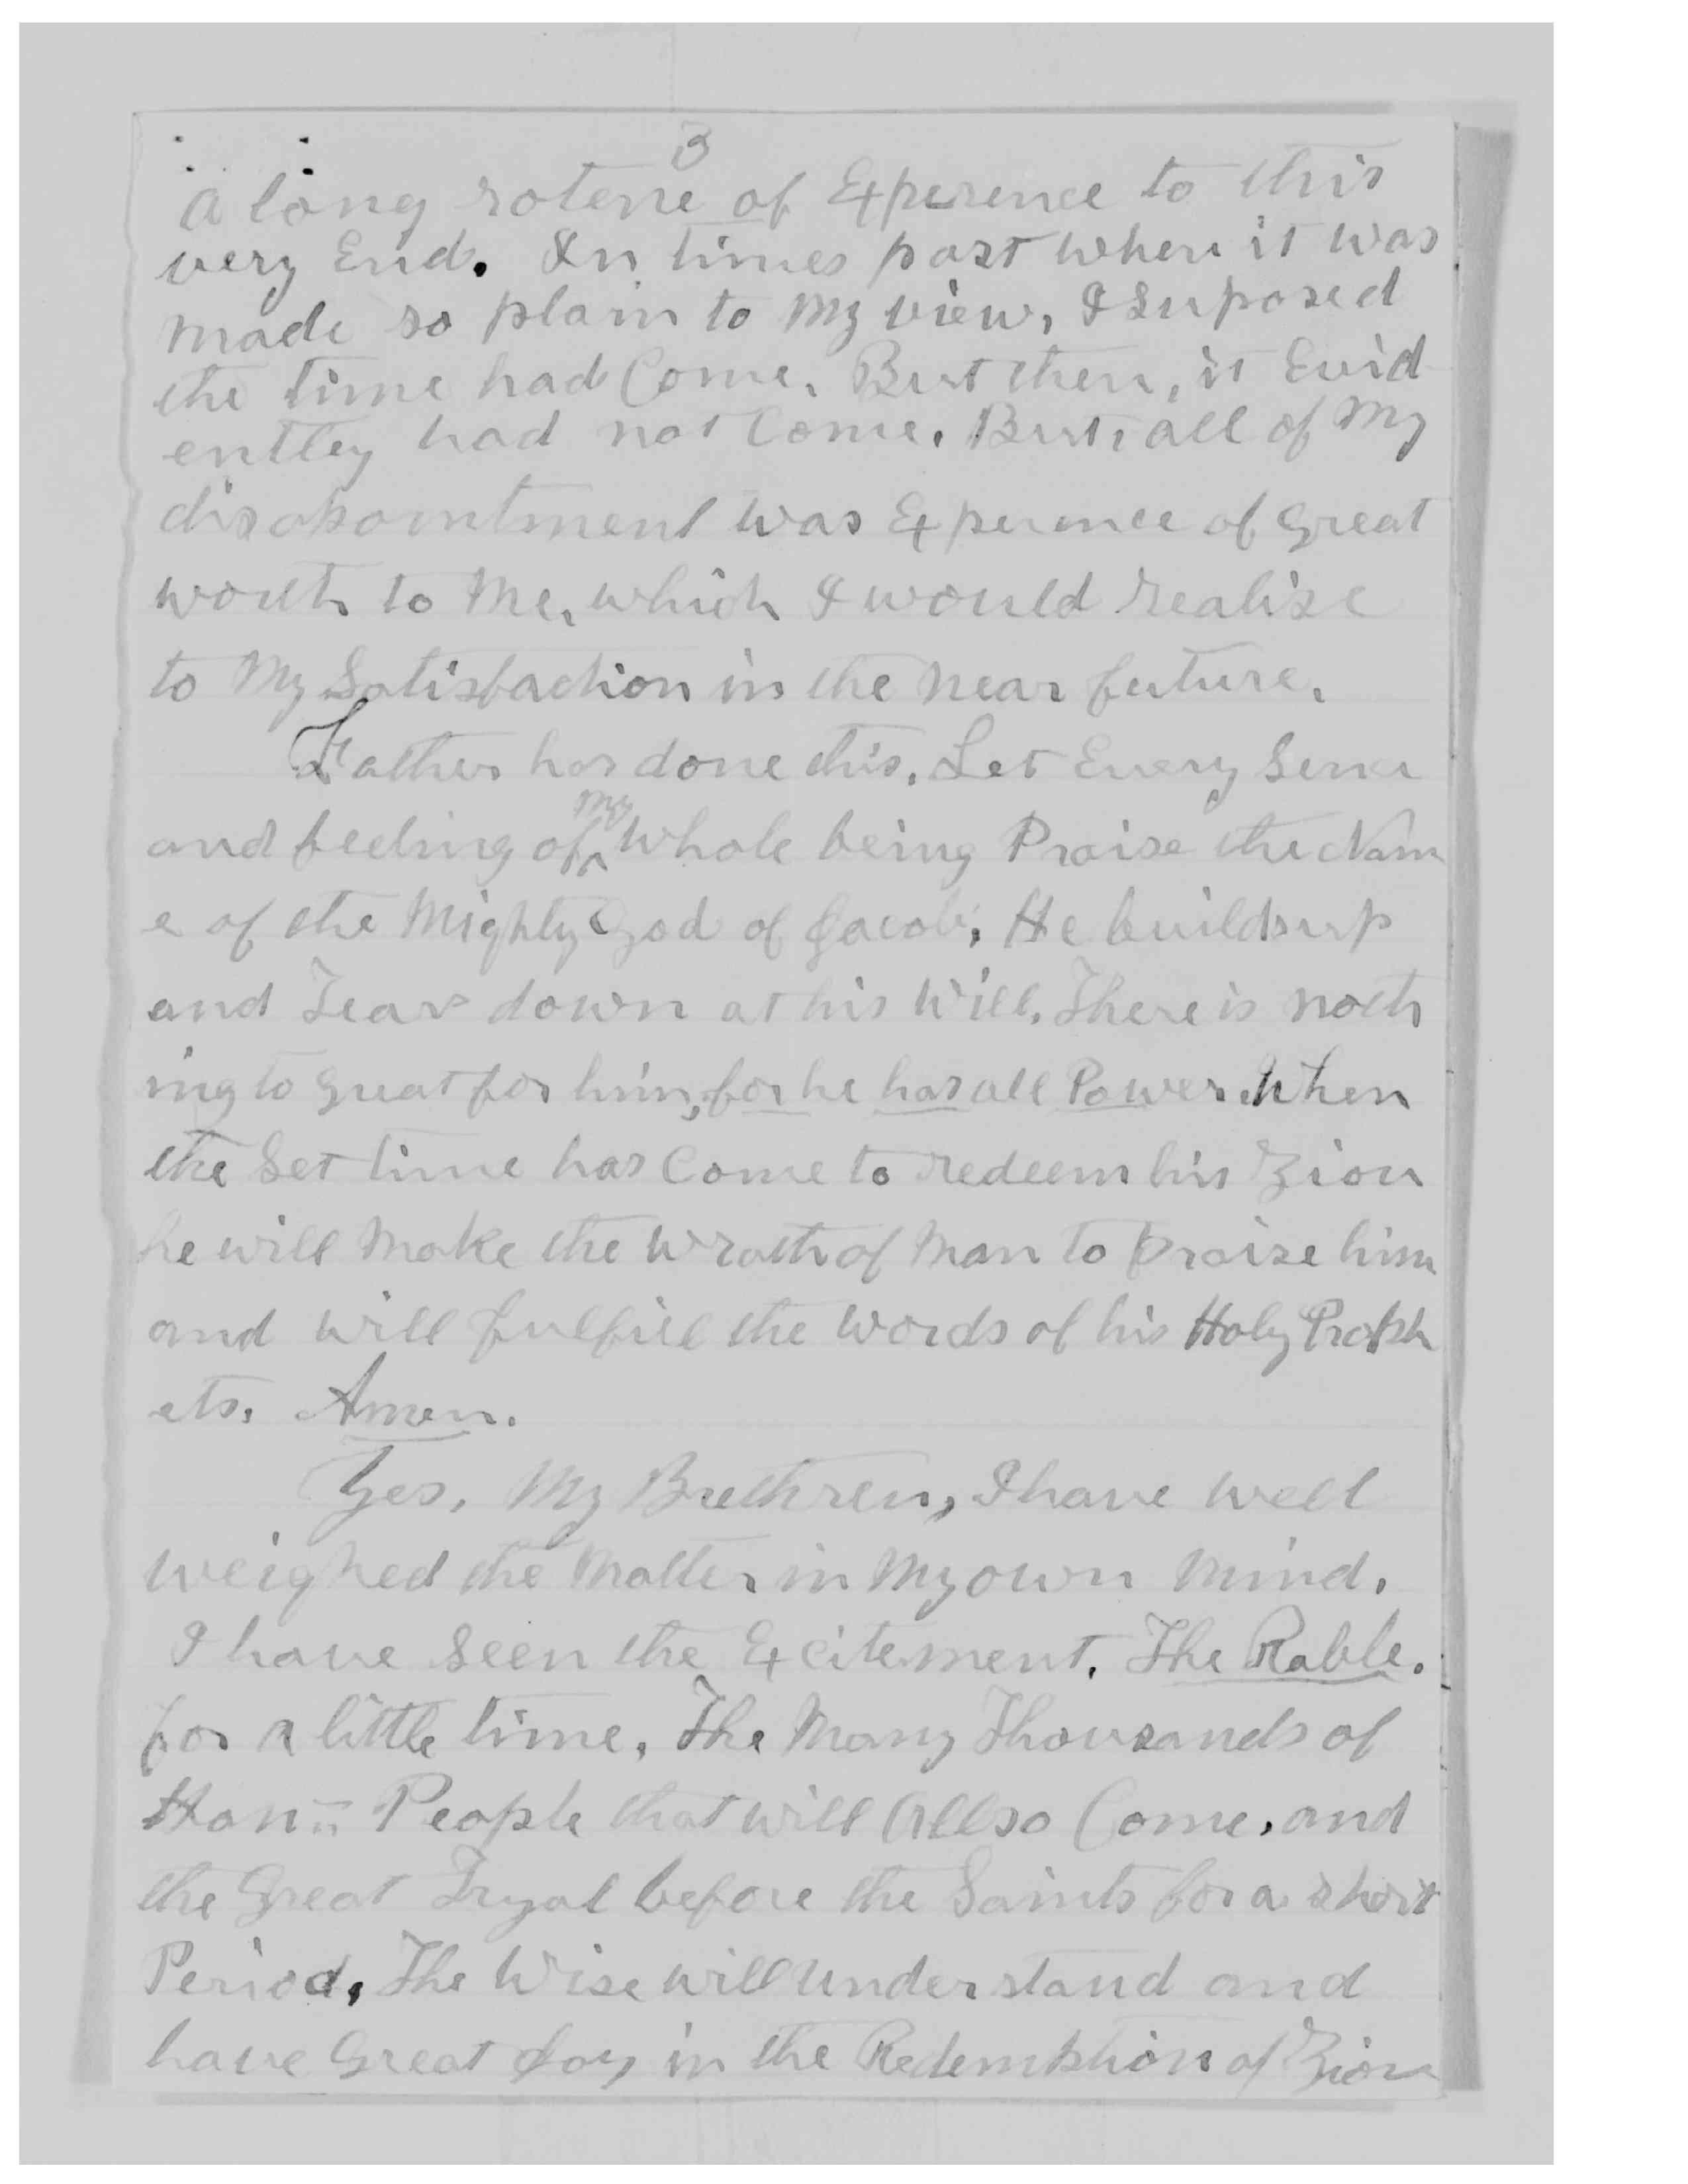 3
a long rotene of Experence to this
very End. In times past when it was
made so plain to My view, I Suposed
the time had Come. But then, it Evid
entley had not Come. But, all of My
disapointment was Experince of Great
worth to Me, which I would realize
to My Satisfaction in the Near future.
Father has done this. Let Every Sence
my
and feeling of ^ Whole being Praise the Nam
e of the Mighty God of Jacob. He builds up
and Tears down at his Will. There is noth
ing to Great for him, for he has all Power. When
the Set time has Come to redeem his Zion
he will Make the Wrath of Man to praise him
and will fulfill the Words of his Holy Proph
ets. Amen.
Yes, My Brethren, I have well
weighed the Matter in My own Mind.
I have Seen the Excitement. The Rable.
for a little time. The Many Thousands of
Hon= People that will Allso Come, and
the Great Tryal before the Saints for a short
Period. The Wise will understand and
have Great Joy in the Redemption of Zion